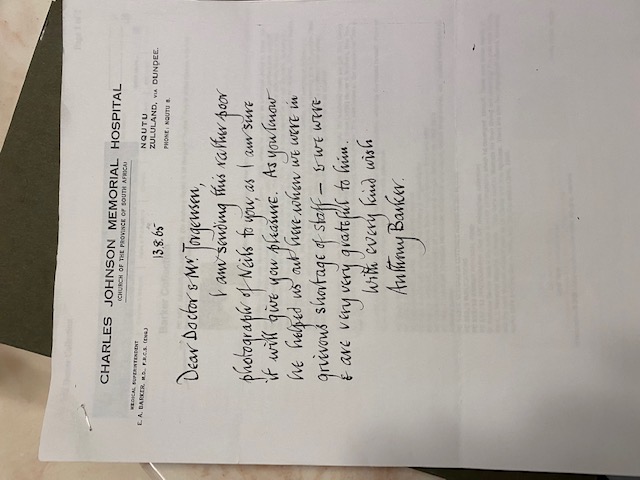 CHARLES JOHNSON MEMORIAL HOSPITAL
(CHURCH OF THE PROVINCE OF SOUTH AFRICA)
MEDICAL SUPERINTENDENT
E. A. BARKER, M.D., F.R.C.S. (ENG.)
NQUTU
ZULULAND, VIA DUNDEE.
PHONE: NQUTU 8.
13.8.65
Dear Doctor & Mr. Jorgensen,
I am sending this rather poor
photograph of Neils to you, as I am sure
it will give you pleasure. As you know
he helped us out here when we were in
grievous shortage of staff – & we were
& are very very grateful to him.
With every kind wish
Anthony Barker.